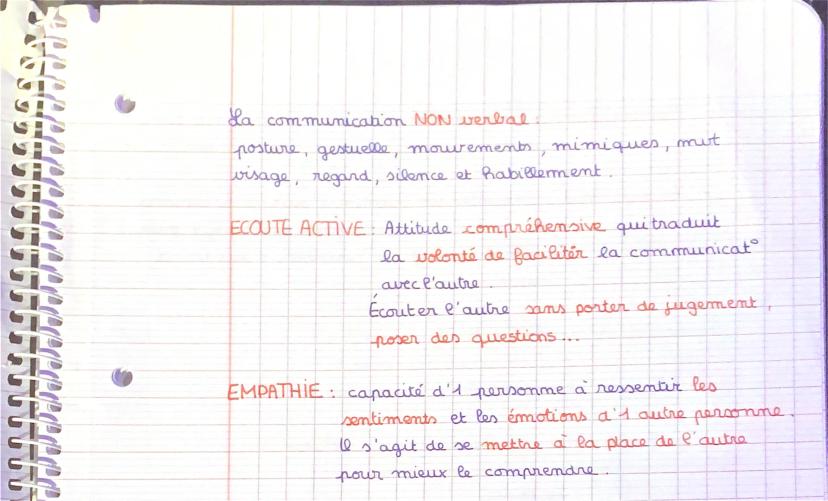 La communication NON verbal :
posture, gestuelle, mouvements, mimiques, mvt
visage, regard, silence et habillement.
ECOUTE ACTIVE : Attitude compréhensive qui traduit
la volonté de faciliter la communicat°
avec l'autre.
Écouter l'autre sans porter de jugement,
poser des questions...
EMPATHIE : capacité d'1 personne à ressentir les
sentiments et les émotions d'1 autre personne.
Il s'agit de se mettre à la place de l'autre
pour mieux le comprendre.